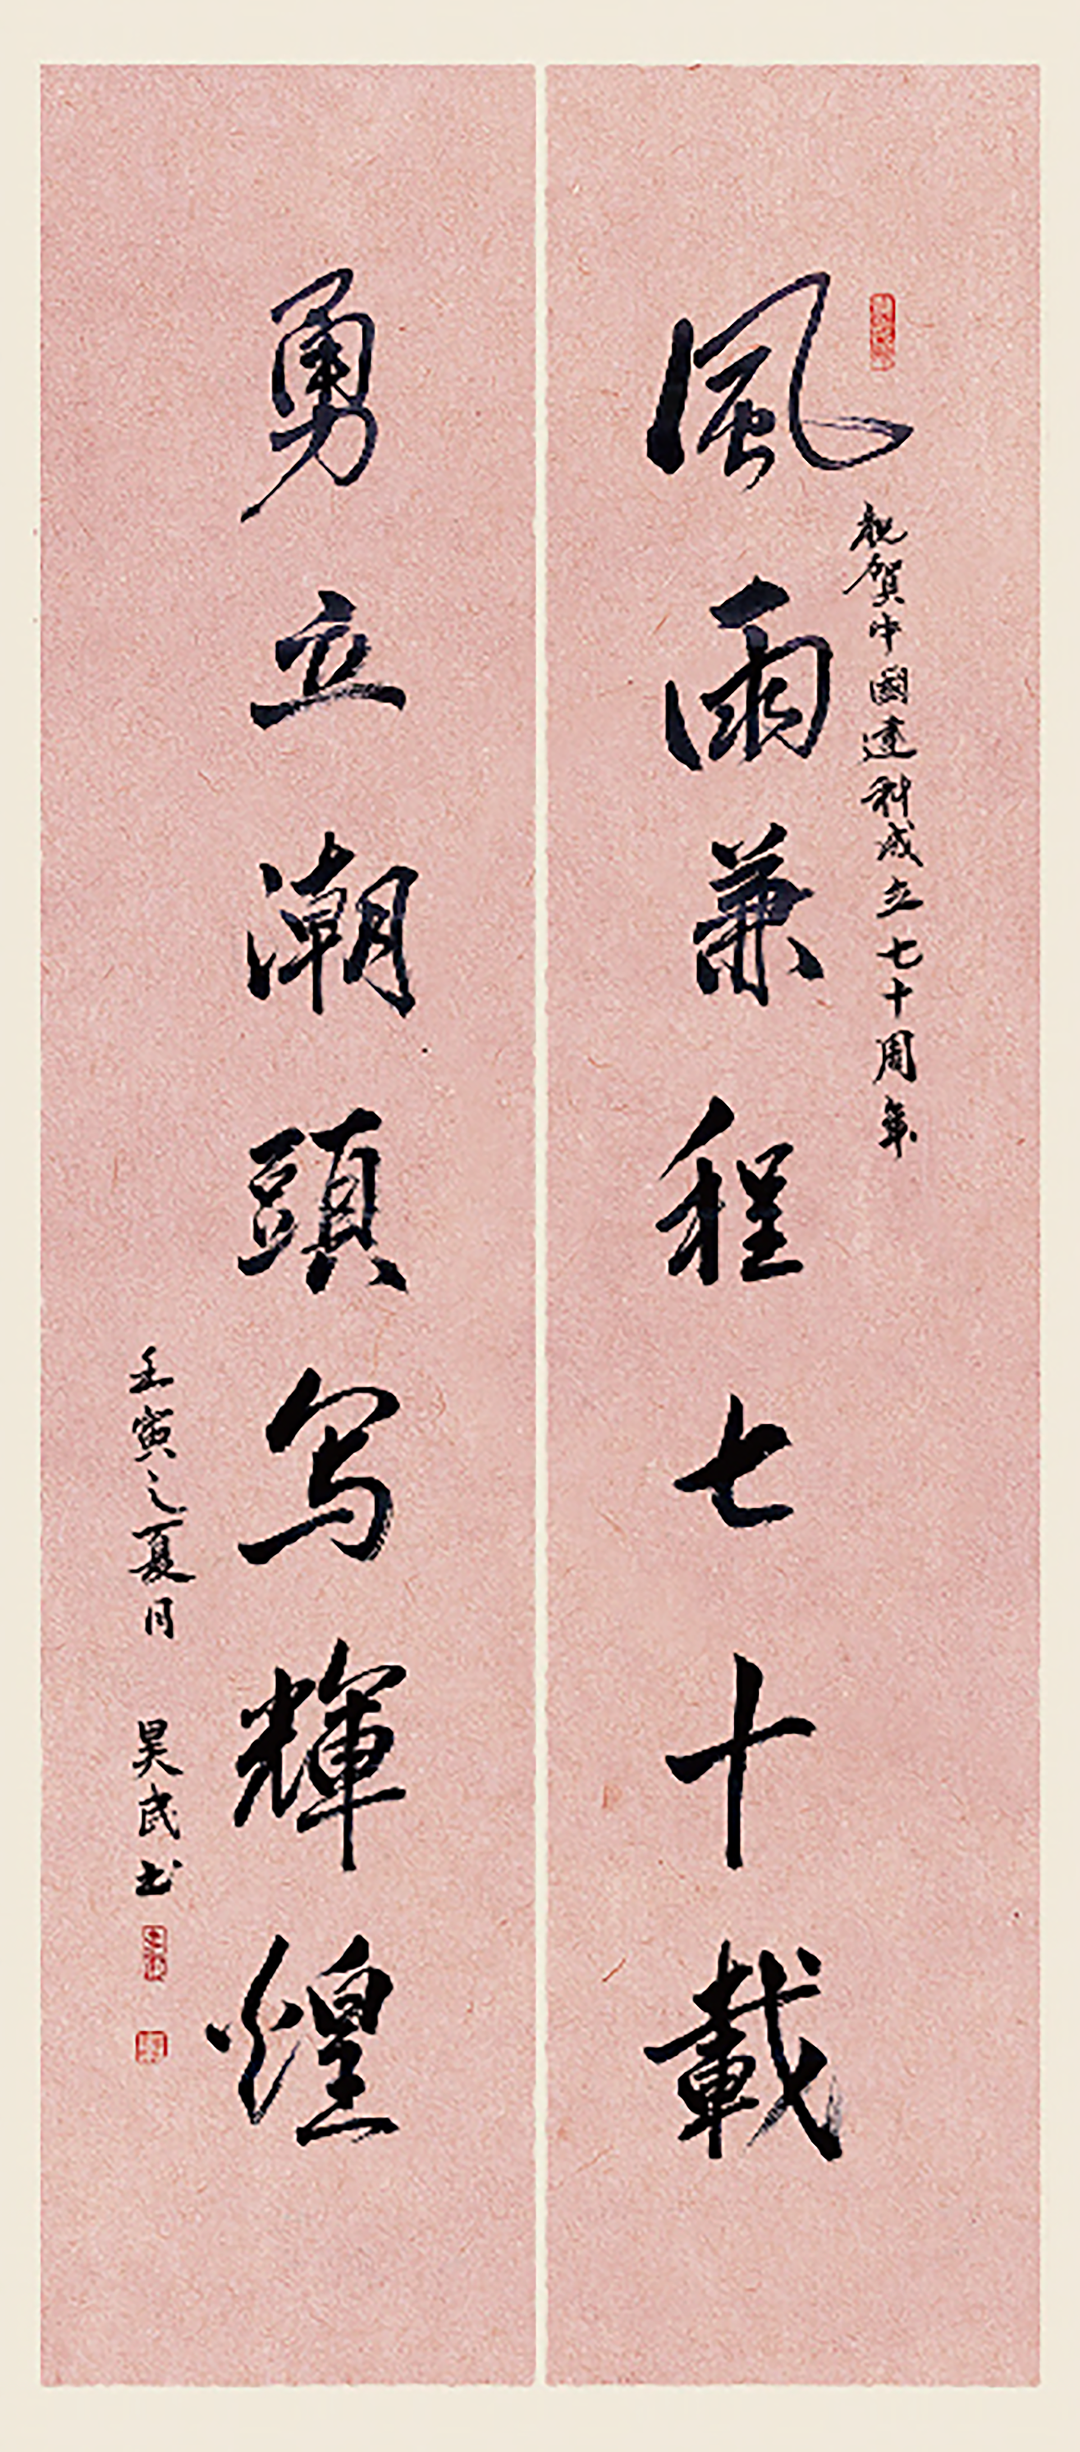 風雨兼程七十載
祝賀中國建科成立七十周年
勇立潮頭写輝煌
壬寅之夏月 昊民书